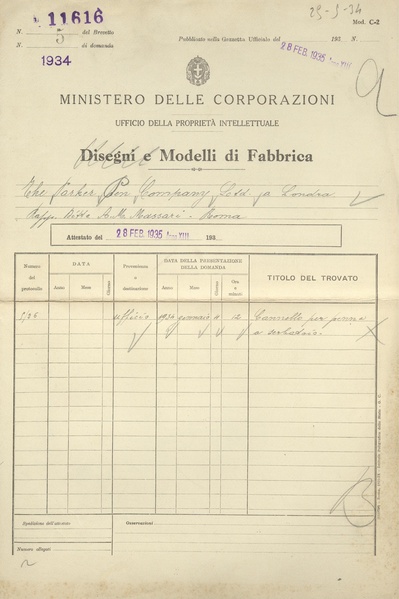 29-5-34
Mod. C-2
N. 11616 del Brevetto
N. 5 di domanda
1934
Pubblicato nella Gazzetta Ufficiale del 193
28 FEB. 1935 Anno XIII
MINISTERO DELLE CORPORAZIONI
UFFICIO DELLA PROPRIETÀ INTELLETTUALE
Disegni e Modelli di Fabbrica
The Parker Pen Company Ltd a Londra
Rapp. Ditta A. M. Massari - Roma
Attestato del 28 FEB. 1935 Anno XIII 193
Numero del protocollo
DATA
Anno Mese Giorno
Provenienza o destinazione
DATA DELLA PRESENTAZIONE DELLA DOMANDA
Anno Mese Giorno Ora e minuti
TITOLO DEL TROVATO
ufficio 1934 gennaio 12 Cannello per penna
a serbatoio
Spedizione dell'attestato
Osservazioni
Numero allegati